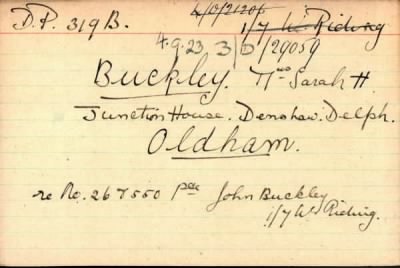 D.P. 319B.
1/7 W. Riding
4.9.23, 3/D/29059
Buckley. Mrs Sarah H.
Junction House. Denshaw. Delph.
Oldham.
re No. 267550 Pte John Buckley
1/7 W. Riding.